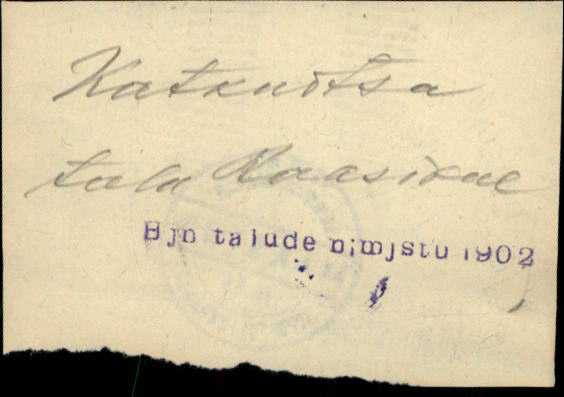 Katknotsa
talu Raasikul
Hjn talude nimistu 1902